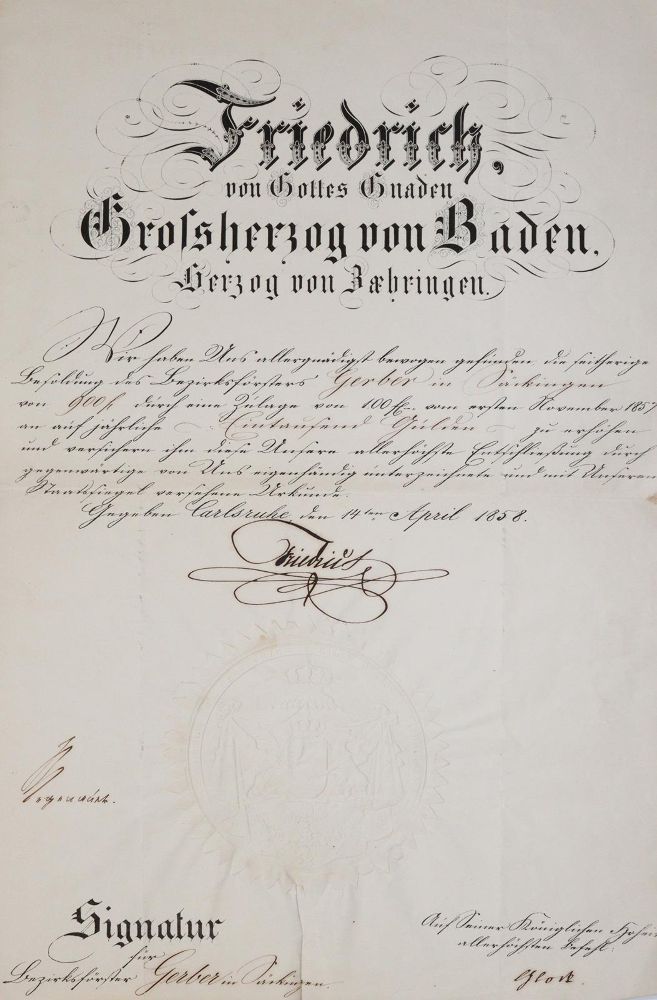 Friedrich,
von Gottes Gnaden
Grossherzog von Baden,
Herzog von Zæhringen.
Wir haben Uns allergnädigst bewogen gefunden, die seitherige
Besoldung des Bezirksförsters Gerber in Säckingen
von 900 f. durch eine Zulage von 100 f. vom ersten November 1857
an auf jährliche Eintausend Gulden zu erhöhen
und versichern ihm diese Unsere allerhöchste Entschließung durch
gegenwärtige von Uns eigenhändig unterzeichnete und mit Unserem
Staatssiegel versehene Urkunde.
Gegeben Carlsruhe, den 14ten April 1858.
Friedrich
Signatur
für
Bezirksförster Gerber in Säckingen.
Auf Seiner Königlichen Hoheit
allerhöchsten Befehl: